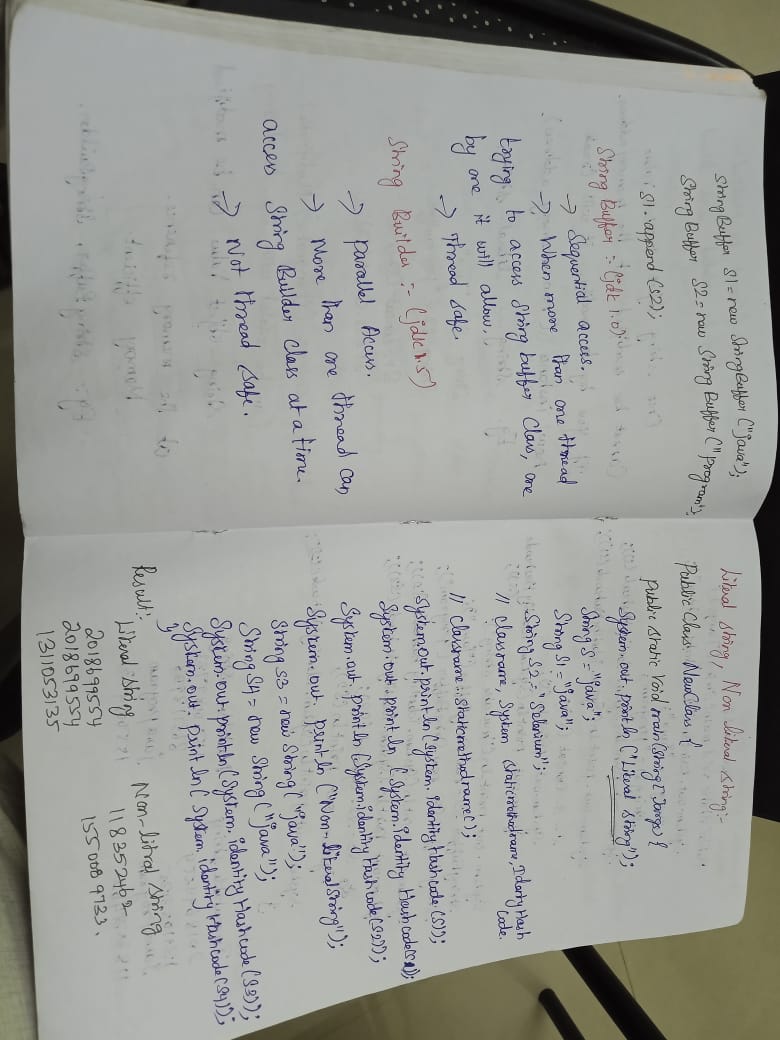 String Buffer S1 = new String Buffer ("java");
String Buffer S2 = new String Buffer ("program");
S1. append (S2);
String Buffer :- (jdk 1.0)
→ Sequential access.
→ When more than one thread
trying to access String buffer Class, one
by one it will allow.
→ Thread safe.
String Builder :- (jdk 1.5)
→ parallel Access.
→ More than one thread can
access String Builder class at a time.
→ Not thread safe.
Literal string, Non literal string:-
Public Class NewClass {
public static void main (String [ ] args) {
System. out. println ("Literal String");
String S = "java";
String S1 = "java";
String S2 = "Selenium";
// classname, System (staticmethodname, Identity Hash
Code.
// Classname. staticmethodname();
System.out. println (System. identity Hashcode (S));
System.out. println (System. identity Hashcode(S1));
System.out. println (System.identity Hashcode (S2));
System. out. println ("Non-literal String");
String S3 = new String ("java");
String S4 = new String ("java");
System.out.println (System. identity Hashcode (S3));
System.out. println ( System. identity Hashcode (S4));
}
Result:-
Literal String
2018699554
2018699554
1311053135
Non-litral String
118352462
1550089733.